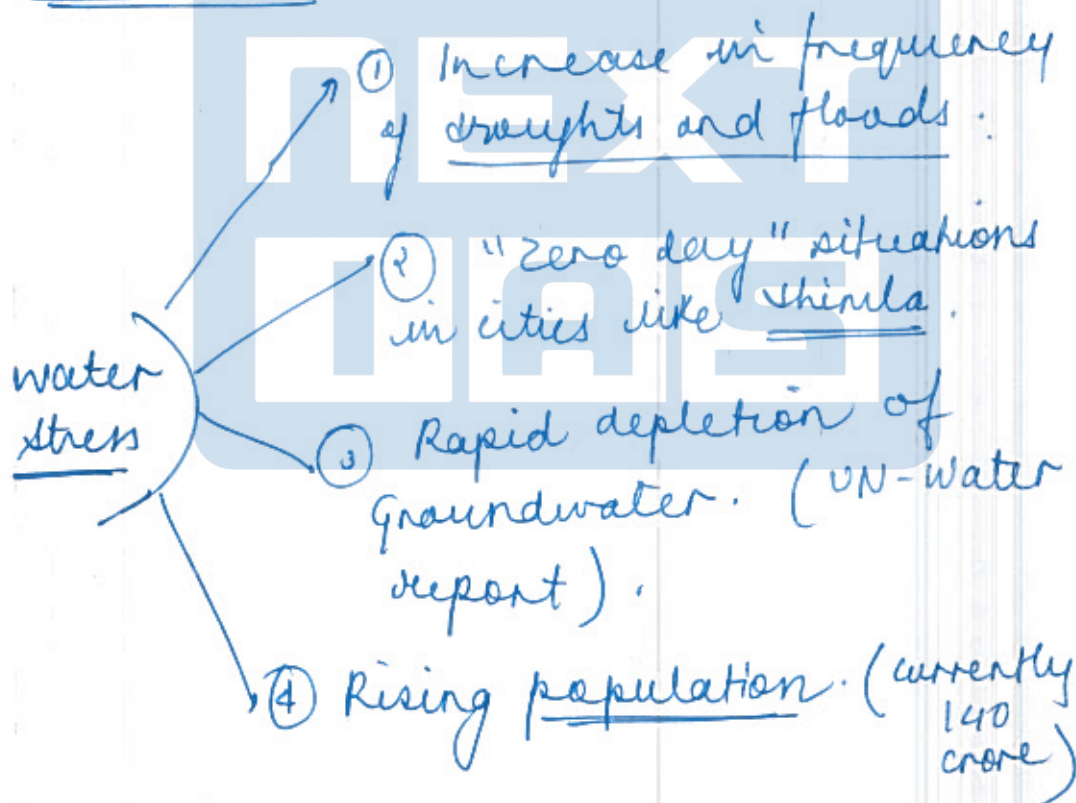 ① Increase in frequency
of droughts and floods.
② "Zero day" situations
in cities like Shimla.
water
stress
③ Rapid depletion of
Groundwater. (UN-Water
report).
④ Rising population. (currently
140
crore)
NEXT
IAS